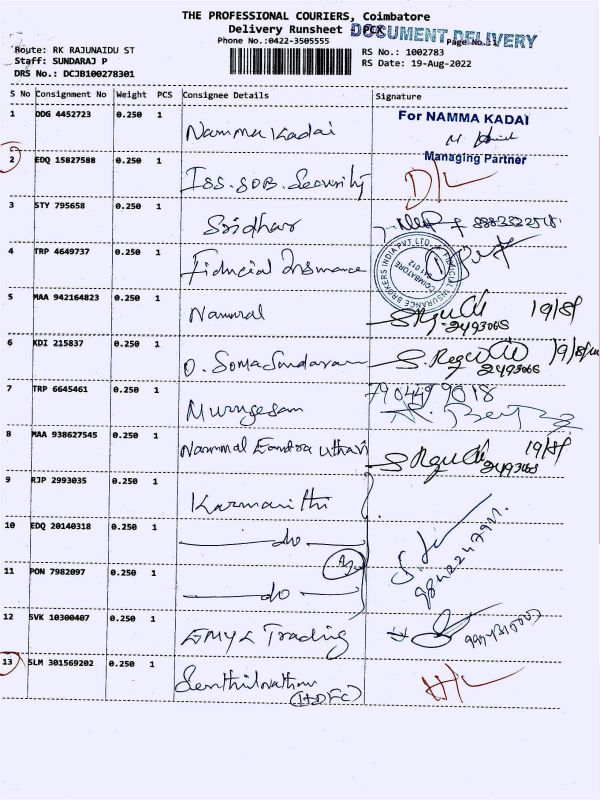 THE PROFESSIONAL COURIERS, Coimbatore
Delivery Runsheet
DOCUMENT DELIVERY
Phone No.:0422-3505555
Page No.:1
Route: RK RAJUNAIDU ST
RS No.: 1002783
Staff: SUNDARAJ P
RS Date: 19-Aug-2022
DRS No.: DCJB100278301
S No Consignment No Weight PCS Consignee Details Signature
1 DDG 4452723 0.250 1 Namma Kadai
For NAMMA KADAI
Managing Partner
2 EDQ 15827588 0.250 1 ISS. SDB. Security D/L
3 STY 795658 0.250 1 Sridhar
4 TRP 4649737 0.250 1 Fiducial Insurance
FIDUCIAL INSURANCE BROKERS INDIA PVT. LTD.
COIMBATORE
641 012
5 MAA 942164823 0.250 1 Nammal 19/8/
2493068
6 KDI 215837 0.250 1 O. Somasundaram
2493068
7 TRP 6645461 0.250 1 Murugesam 7904499018
8 MAA 938627545 0.250 1 Nammal 19/8/
2493068
9 RJP 2993035 0.250 1
10 EDQ 20140318 0.250 1 do
11 PON 7982097 0.250 1 do
12 SVK 10300407 0.250 1 Trading
13 SLM 301569202 0.250 1 Senthilnathan
(HDFC)